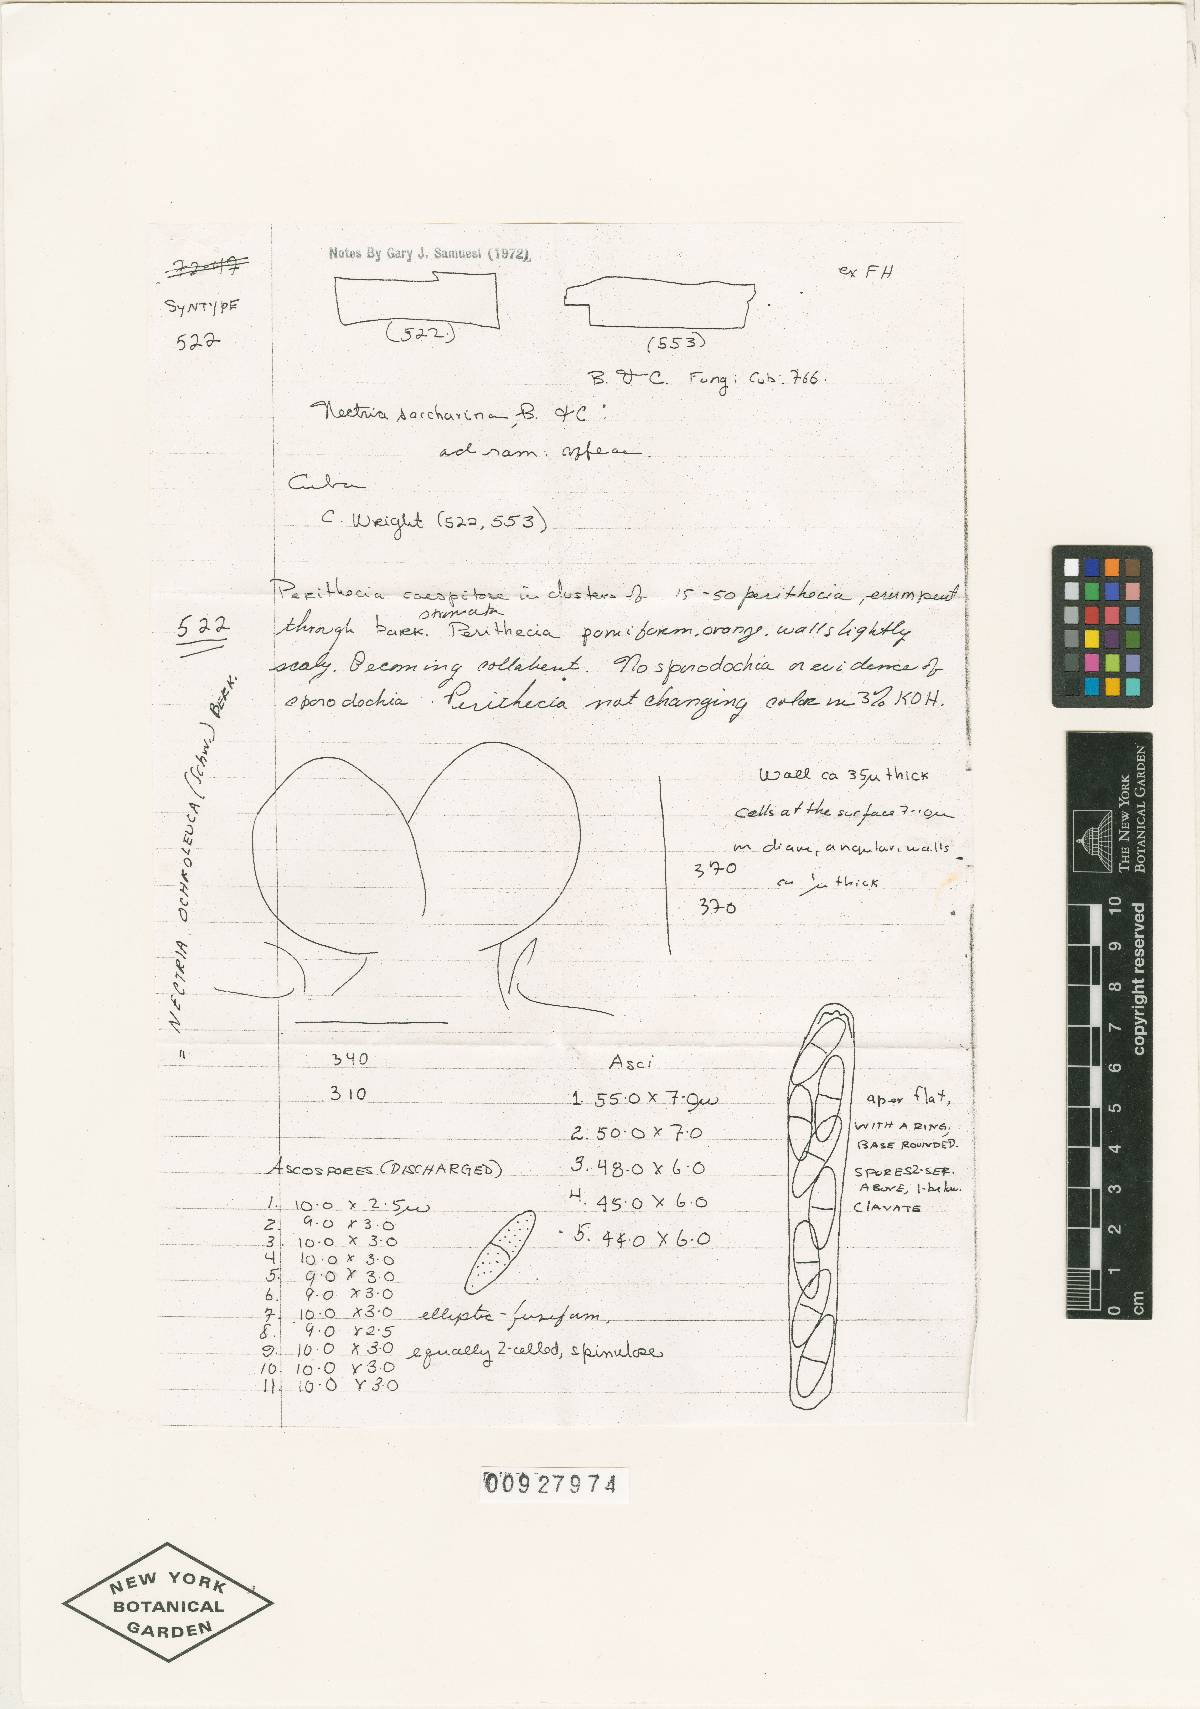 Notes By Gary J. Samuesl (1972)
72-117
SYNTYPE
522
(522)
(553)
ex FH
B. & C. Fungi Cub. 766.
Nectria saccharina, B. & C.
ad ram. coffeae.
Cuba
C. Wright (522, 553)
522
Perithecia caespitose in clusters of 15-50 perithecia, erumpent
stromata
through bark. Perithecia pomiform, orange, wall slightly
scaly. Becoming collabent. No sporodochia or evidence of
sporodochia. Perithecia not changing color in 3% KOH.
= NECTRIA OCHROLEUCA (Schw.) BERK.
Wall ca 35µ thick
cells at the surface 7-10µ
in diam, angular, walls
ca 1µ thick
370
370
340
310
Asci
1. 55.0 x 7.0µ
2. 50.0 x 7.0
3. 48.0 x 6.0
4. 45.0 x 6.0
5. 44.0 x 6.0
apex flat,
WITH A RING,
BASE ROUNDED.
SPORES 2-SER.
ABOVE, 1-below.
CLAVATE
ASCOSPORES (DISCHARGED)
1. 10.0 x 2.5µ
2. 9.0 x 3.0
3. 10.0 x 3.0
4. 10.0 x 3.0
5. 9.0 x 3.0
6. 9.0 x 3.0
7. 10.0 x 3.0
8. 9.0 x 2.5
9. 10.0 x 3.0
10. 10.0 x 3.0
11. 10.0 x 3.0
elliptic-fusiform,
equally 2-celled, spinulose
00927974
NEW YORK
BOTANICAL
GARDEN
THE NEW YORK
BOTANICAL GARDEN
copyright reserved
0 1 2 3 4 5 6 7 8 9 10
cm